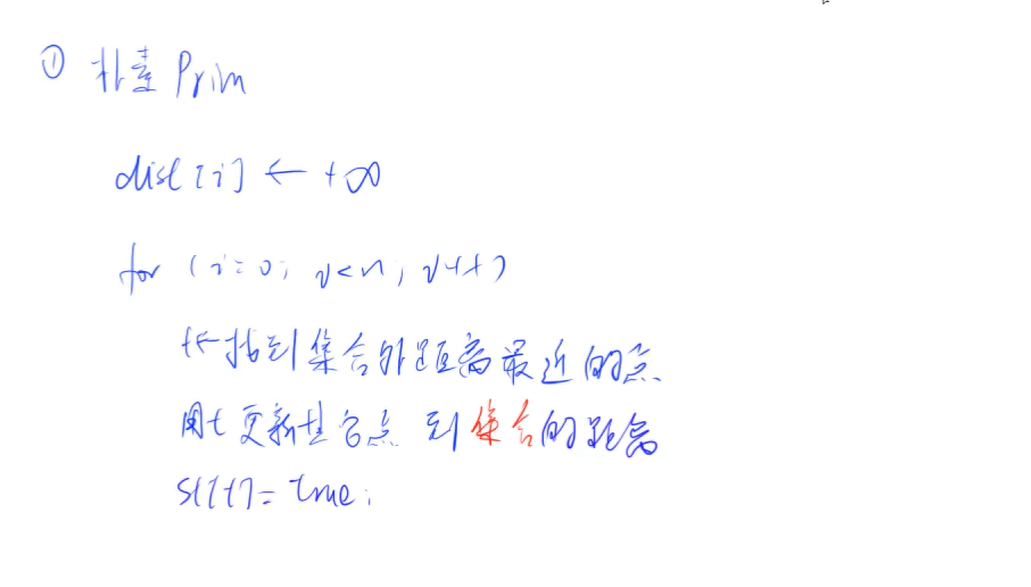 ① 朴素Prim
dist[i] ← +∞
for (i=0; i<n; i++)
t←找到集合外距离最近的点
用t更新其它点 到集合的距离
st[t]=true;